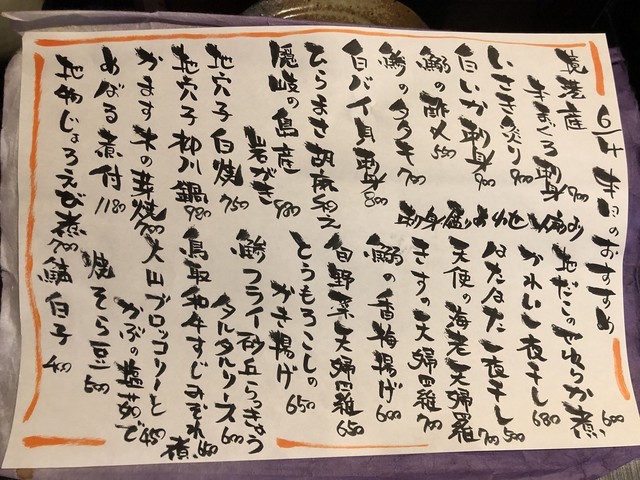 6/4 本日のおすすめ
境港産
本まぐろ刺身 900
いさき炙り 900
白いか刺身 900
鰯の酢〆 580
鯵のタタキ 700
白バイ貝刺身 800
ひらまさ胡麻和え
隠岐の島産
岩がき 980
地穴子白焼 750
地穴子柳川鍋 980
かます木の芽焼 700
めばる煮付 1180
地物じょろえび煮 700
刺身盛りあわせ
地だこのやわらか煮 600
かれい一夜干し 680
はたはた一夜干し 500
天使の海老天婦羅 700
きすの天婦羅 700
鰯の香梅揚げ 600
旬野菜天婦羅 650
とうもろこしの
かき揚げ 650
鯵フライ砂丘らっきょう
タルタルソース 600
鳥取和牛すじみぞれ煮
大山ブロッコリーと
かぶの塩茹で 480
焼そら豆 500
鱗白子 400